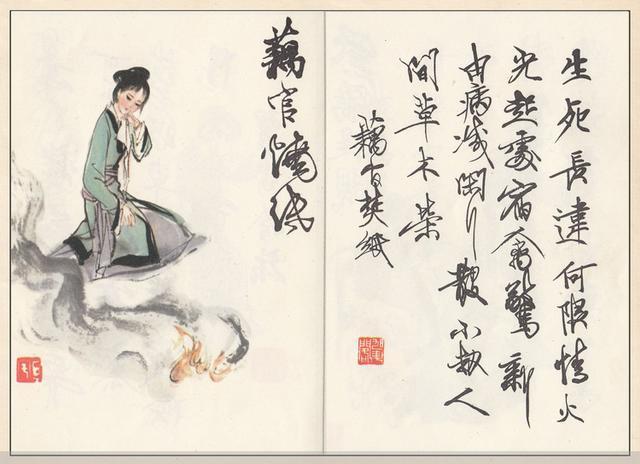 生死長違何限情火
光起處宿禽驚新
由病减閑行散不敵人
間草木荣
藕官焚紙
藕官燒紙